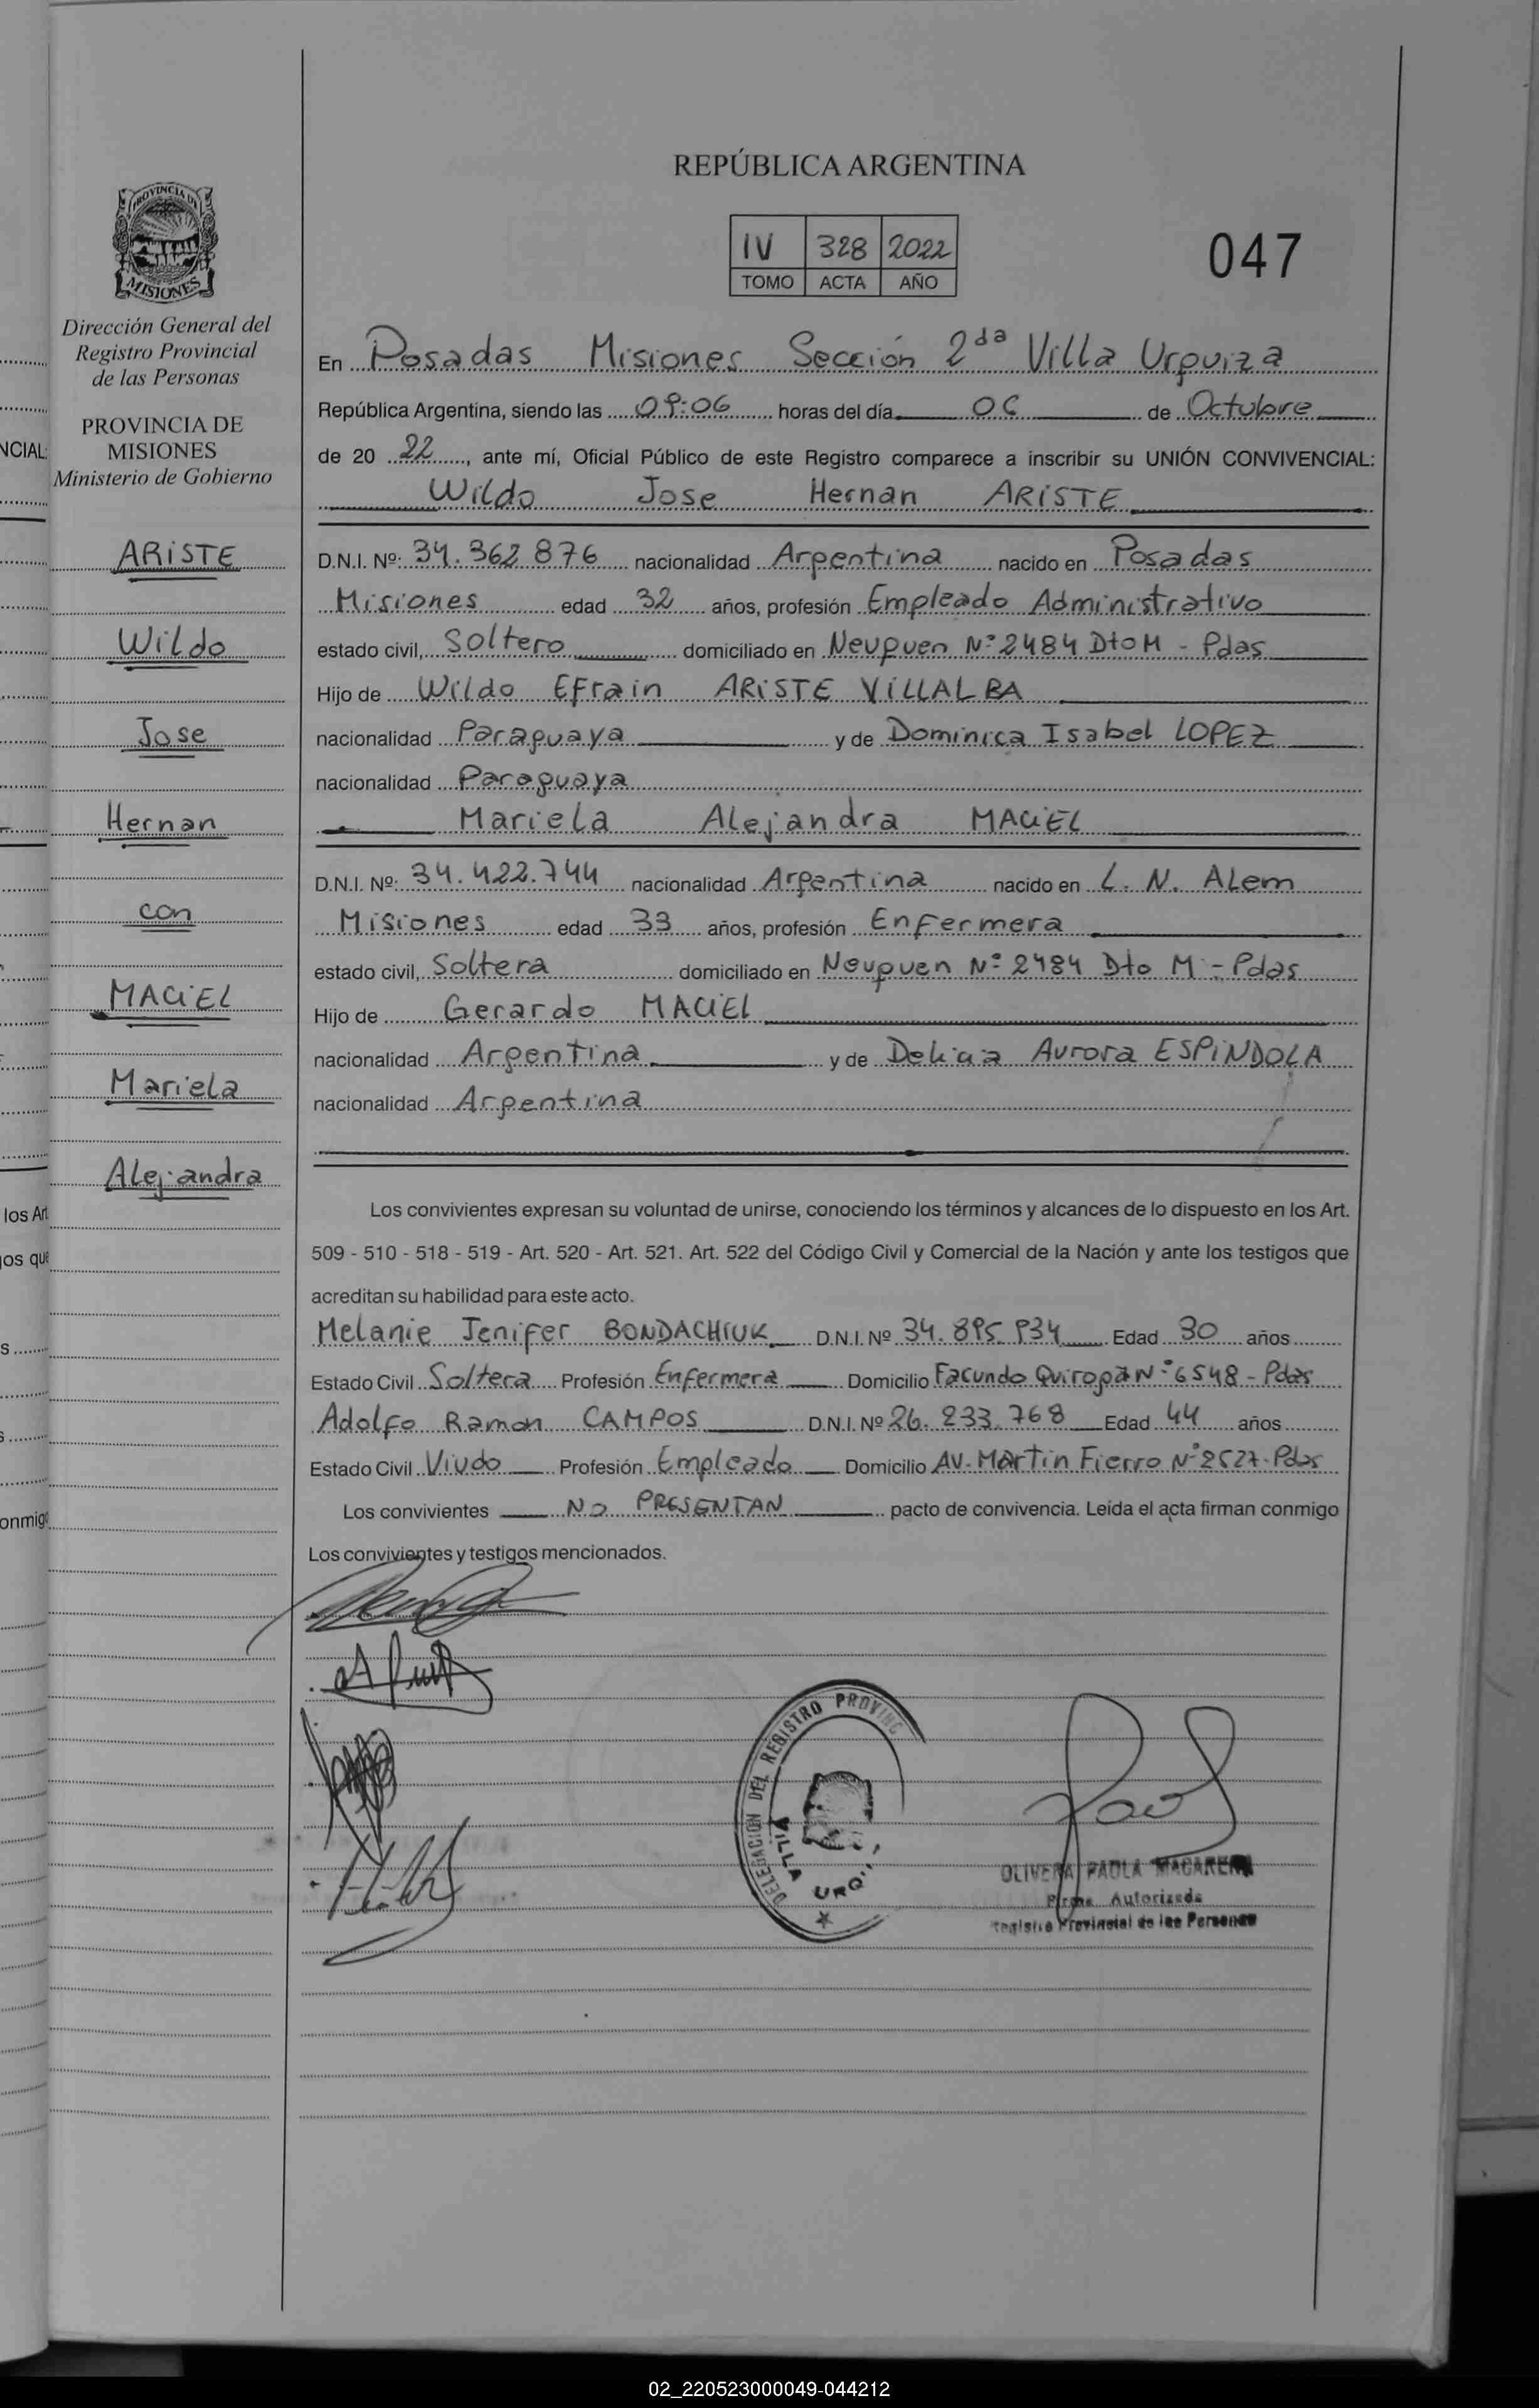 REPÚBLICA ARGENTINA
IV 328 2022
TOMO ACTA AÑO
047
PROVINCIA DE
MISIONES
Dirección General del
Registro Provincial
de las Personas
PROVINCIA DE
MISIONES
Ministerio de Gobierno
ARISTE
Wildo
Jose
Hernan
con
MACIEL
Mariela
Alejandra
NCIAL:
los Art
os que
onmigo
En Posadas Misiones Sección 2da Villa Urquiza
República Argentina, siendo las 09:06 horas del día 06 de Octubre
de 20 22, ante mí, Oficial Público de este Registro comparece a inscribir su UNIÓN CONVIVENCIAL:
Wildo Jose Hernan ARISTE
D.N.I. Nº: 34.362.876 nacionalidad Argentina nacido en Posadas
Misiones edad 32 años, profesión Empleado Administrativo
estado civil, Soltero domiciliado en Neuquen Nº 2484 Dto M - Pdas
Hijo de Wildo Efrain ARISTE VILLALBA
nacionalidad Paraguaya y de Dominica Isabel LOPEZ
nacionalidad Paraguaya
Mariela Alejandra MACIEL
D.N.I. Nº: 34.422.744 nacionalidad Argentina nacido en L. N. Alem
Misiones edad 33 años, profesión Enfermera
estado civil, Soltera domiciliado en Neuquen Nº 2484 Dto M - Pdas
Hijo de Gerardo MACIEL
nacionalidad Argentina y de Delicia Aurora ESPINDOLA
nacionalidad Argentina
Los convivientes expresan su voluntad de unirse, conociendo los términos y alcances de lo dispuesto en los Art.
509 - 510 - 518 - 519 - Art. 520 - Art. 521. Art. 522 del Código Civil y Comercial de la Nación y ante los testigos que
acreditan su habilidad para este acto.
Melanie Jenifer BONDACHIUK D.N.I. Nº 34.895.934 Edad 30 años
Estado Civil Soltera Profesión Enfermera Domicilio Facundo Quiroga Nº 6548 - Pdas
Adolfo Ramon CAMPOS D.N.I. Nº 26.233.768 Edad 44 años
Estado Civil Viudo Profesión Empleado Domicilio AV. Martin Fierro Nº 2527 - Pdas
Los convivientes NO PRESENTAN pacto de convivencia. Leída el acta firman conmigo
Los convivientes y testigos mencionados.
DELEGACION DEL REGISTRO PROVINC
VILLA URQ
OLIVERA PAOLA MACARENA
Firma Autorizada
Registro Provincial de las Personas
02_220523000049-044212